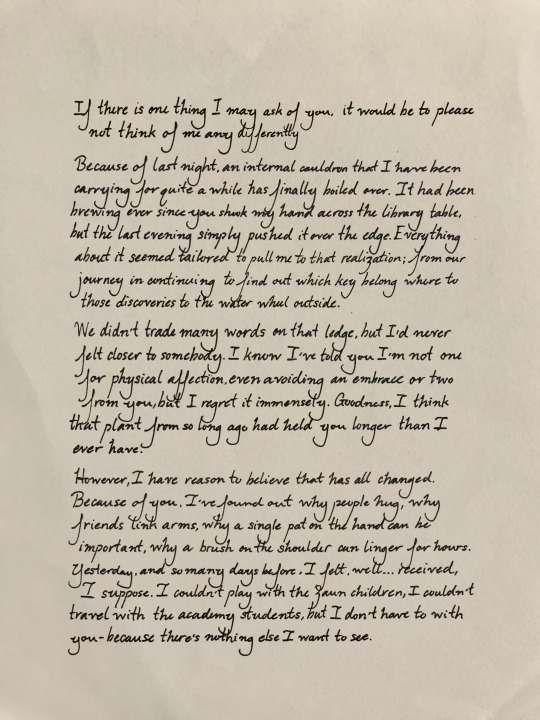 If there is one thing I may ask of you, it would be to please
not think of me any differently
Because of last night, an internal cauldron that I have been
carrying for quite a while has finally boiled over. It had been
brewing ever since you shook my hand across the library table,
but the last evening simply pushed it over the edge. Everything
about it seemed tailored to pull me to that realization; from our
journey in continuing to find out which key belong where to
those discoveries to the water wheel outside.
We didn't trade many words on that ledge, but I'd never
felt closer to somebody. I know I've told you I'm not one
for physical affection, even avoiding an embrace or two
from you, but I regret it immensely. Goodness, I think
that plant from so long ago had held you longer than I
ever have.
However, I have reason to believe that has all changed.
Because of you, I've found out why people hug, why
friends link arms, why a single pat on the hand can be
important, why a brush on the shoulder can linger for hours.
Yesterday, and so many days before, I felt, well... received,
I suppose. I couldn't play with the Zaun children, I couldn't
travel with the academy students, but I don't have to with
you-because there's nothing else I want to see.